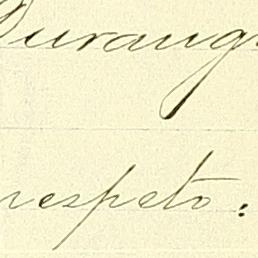 Durang
respeto: